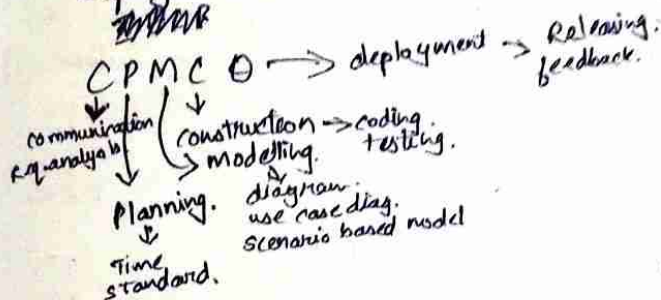 C P M C D → deployment → Releasing.
feedback.
communication
req. analysis
construction → coding.
testing.
modelling.
diagram.
use case diag.
scenario based model
Planning.
Time
standard.